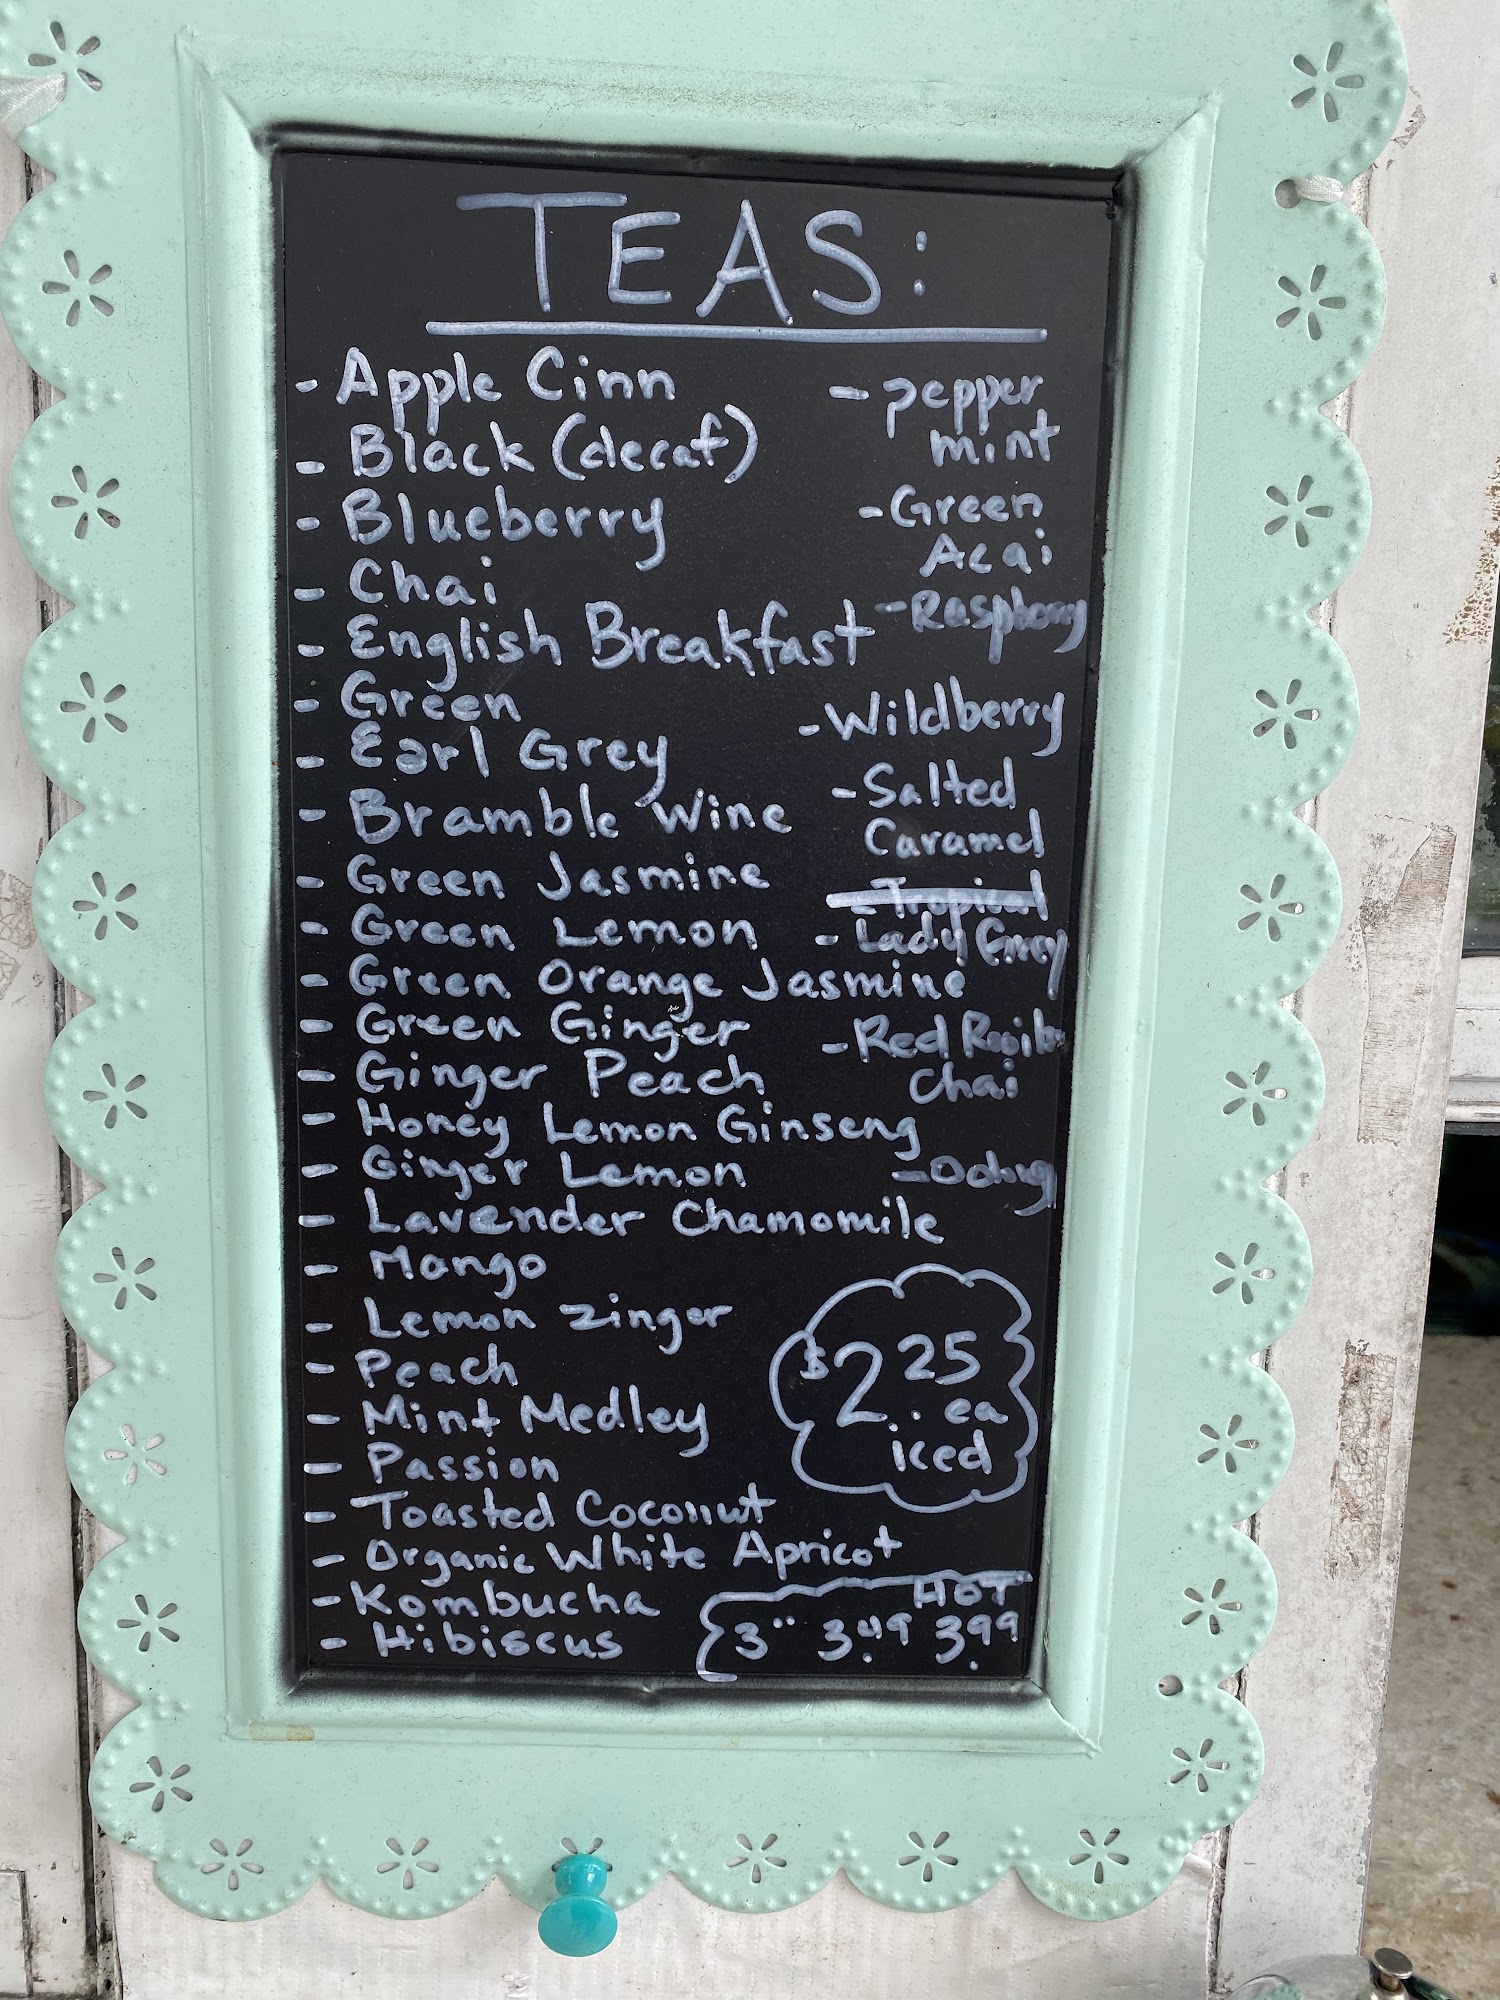 TEAS:
- Apple Cinn
- Black (decaf)
- Blueberry
- Chai
- English Breakfast
- Green
- Earl Grey
- Bramble Wine
- Green Jasmine
- Green Lemon
- Green Orange Jasmine
- Green Ginger
- Ginger Peach
- Honey Lemon Ginseng
- Ginger Lemon
- Lavender Chamomile
- Mango
- Lemon Zinger
- Peach
- Mint Medley
- Passion
- Toasted Coconut
- Organic White Apricot
- Kombucha
- Hibiscus
- pepper
mint
- Green
Acai
- Raspberry
- Wildberry
- Salted
Caramel
- Tropical
- Lady Grey
- Red
Chai
$2.25 ea
iced
HOT
3.49 3.99